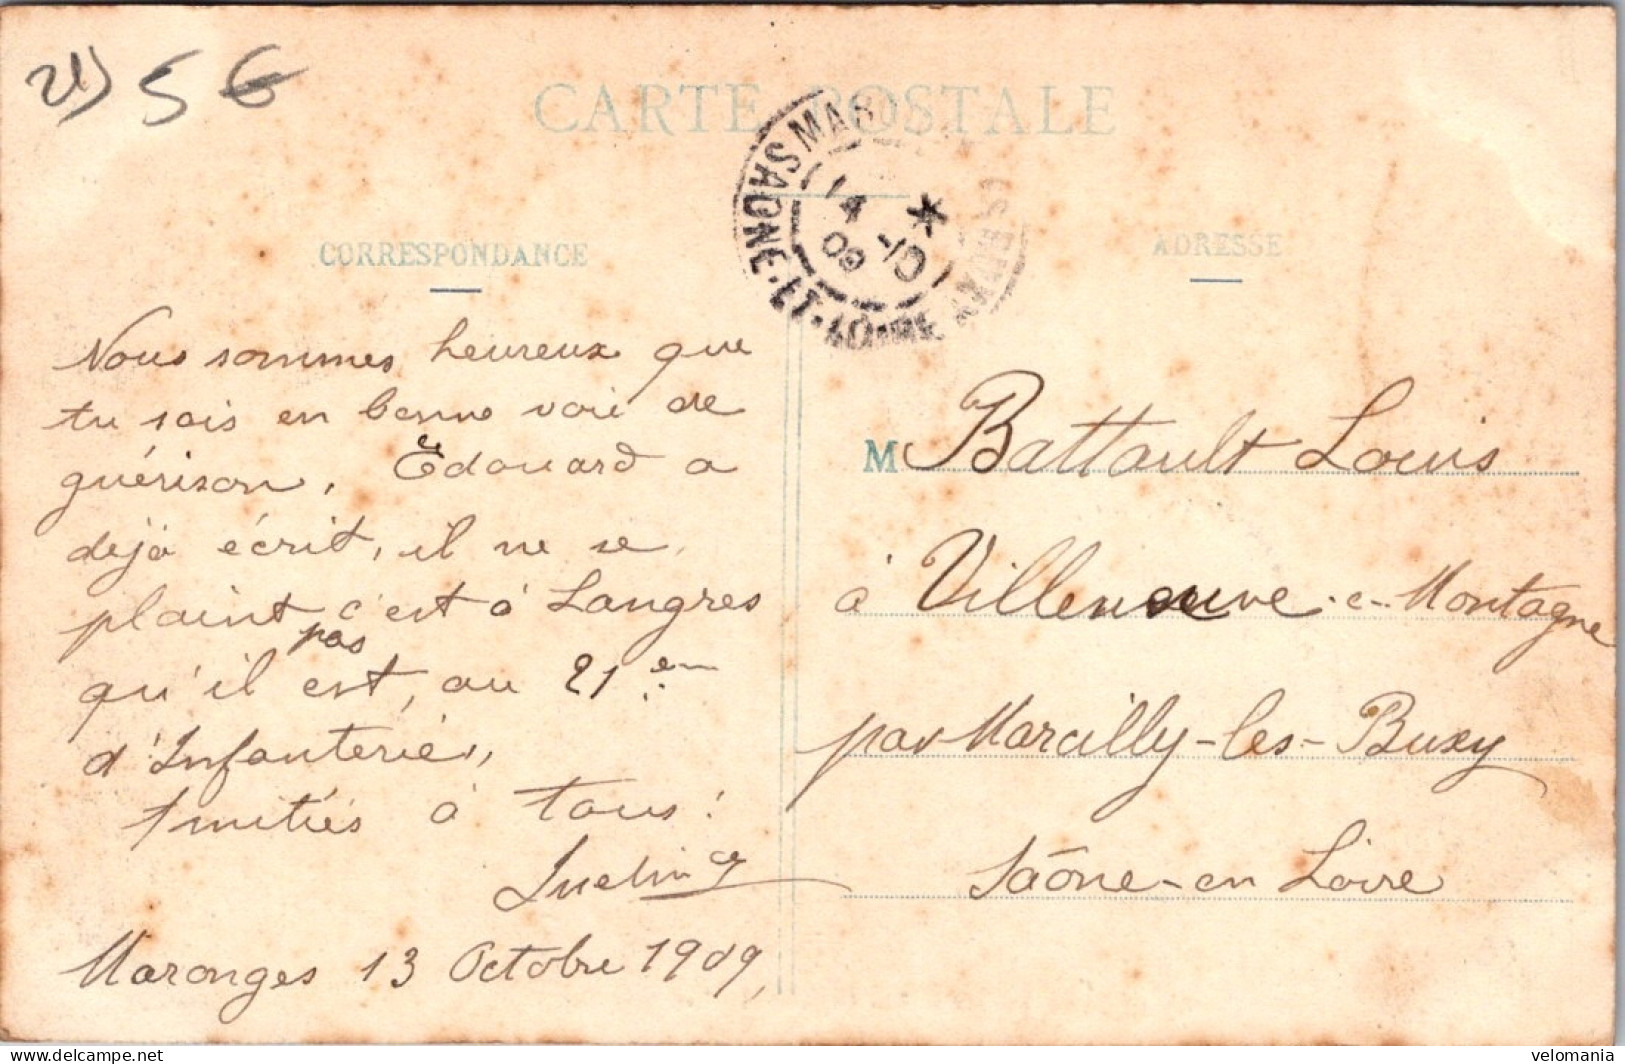 21) 5 €
CARTE POSTALE
SAONE-ET-LOIRE
14 -10
09
CORRESPONDANCE
Nous sommes heureux que
tu sois en bonne voie de
guérison, Edouard a
déjà écrit, il ne se
plaint pas c'est à Langres
qu'il est, au 21em
d'Infanterie,
Amitiés à tous!
Maronges 13 Octobre 1909,
ADRESSE
M Battault Louis
à Villeneuve-e-Montagne
par Marcilly-les-Buxy
Saône-en Loire
velomania